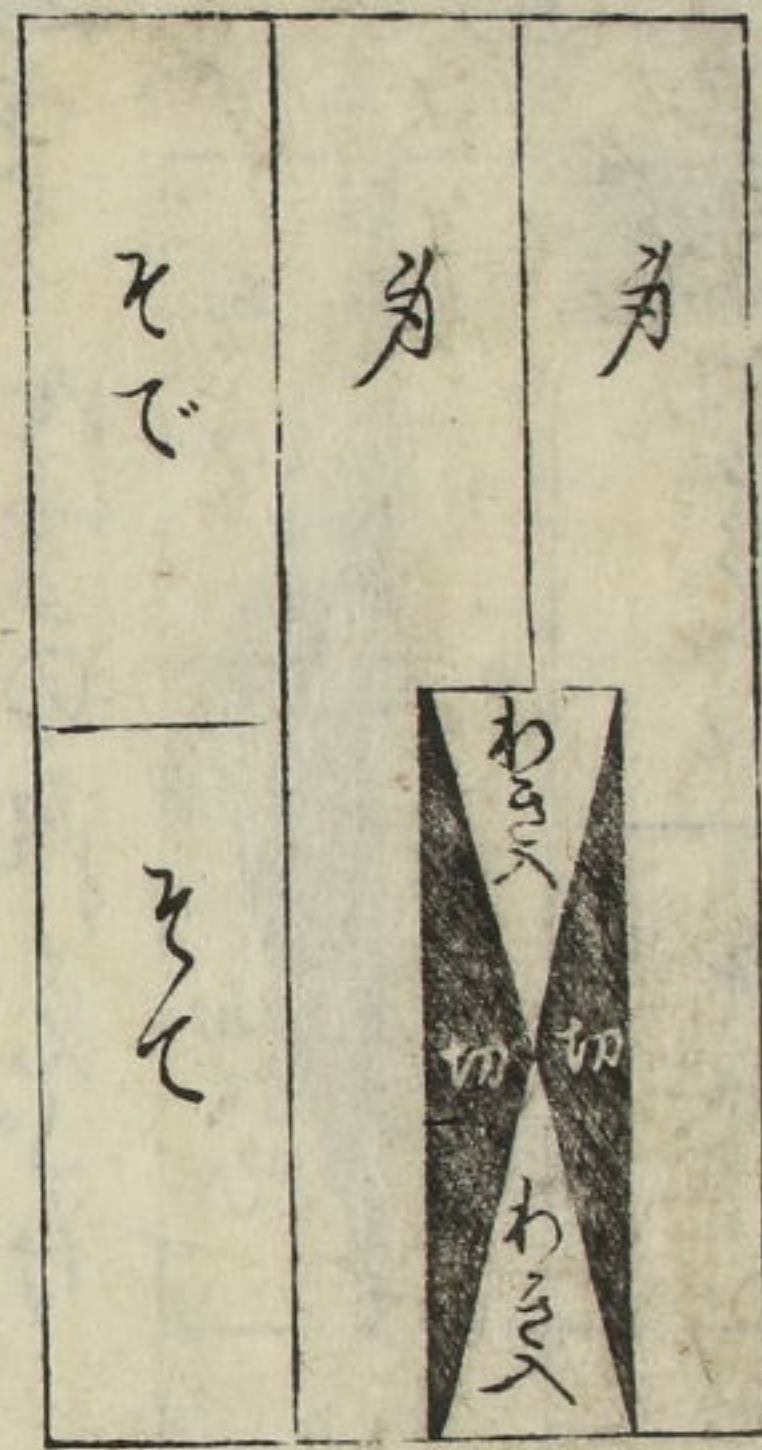 身
身
わき入
切
切
わき入
そで
そて